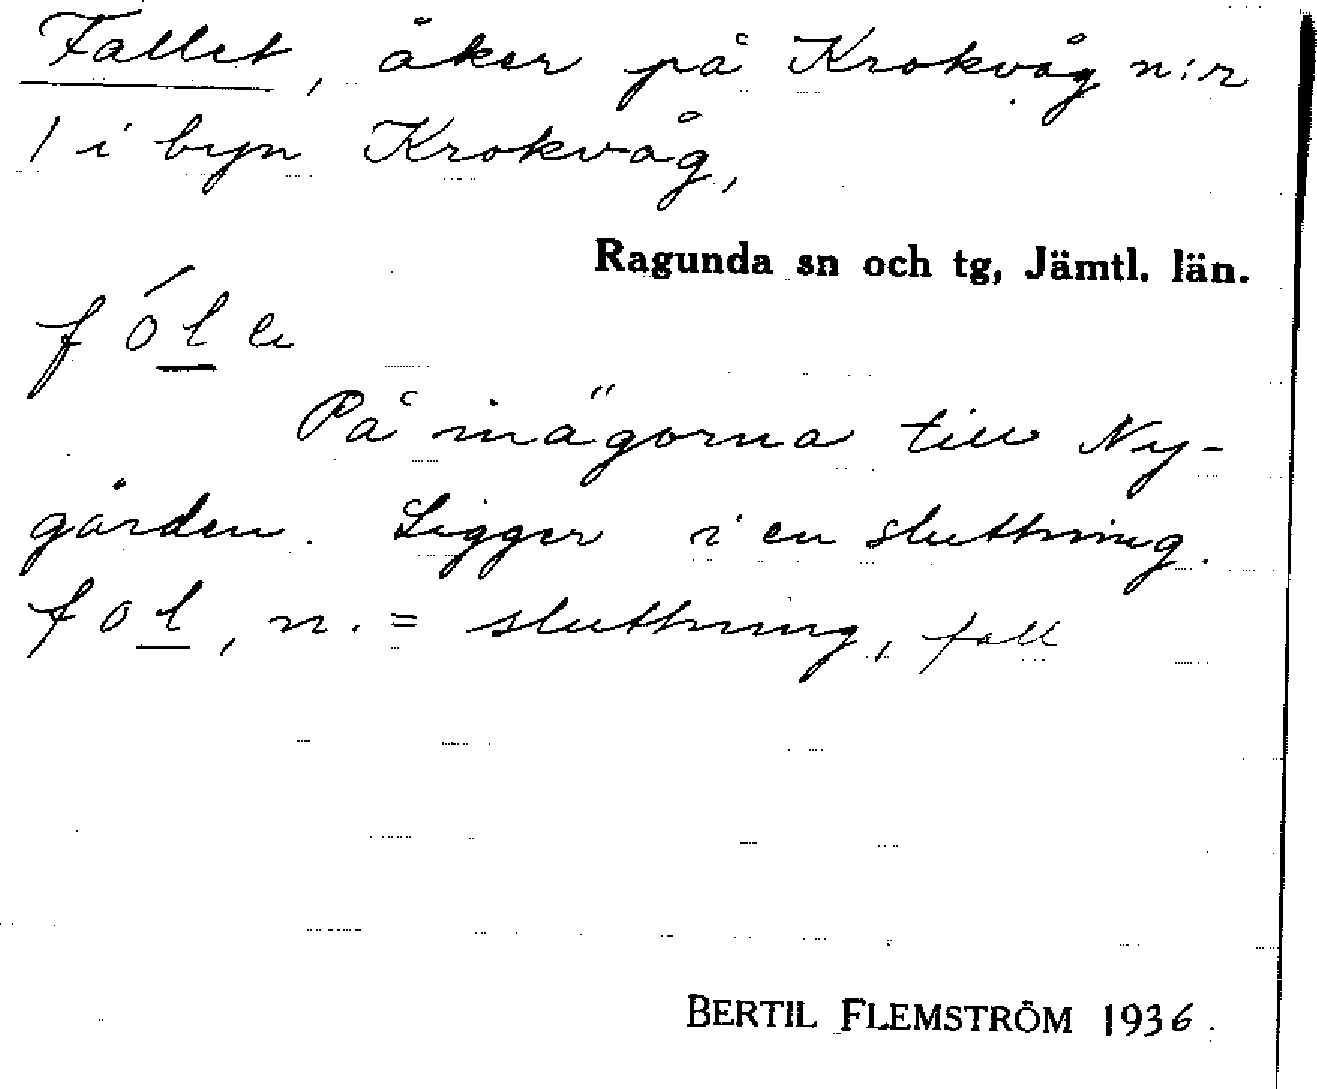 Fallet, åker på Krokvåg n:r
1 i byn Krokvåg,
Ragunda sn och tg, Jämtl. län.
fól
På inägorna till Ny-
gården. Ligger i en sluttning.
fol, n. = sluttning, fall
BERTIL FLEMSTRÖM 1936.